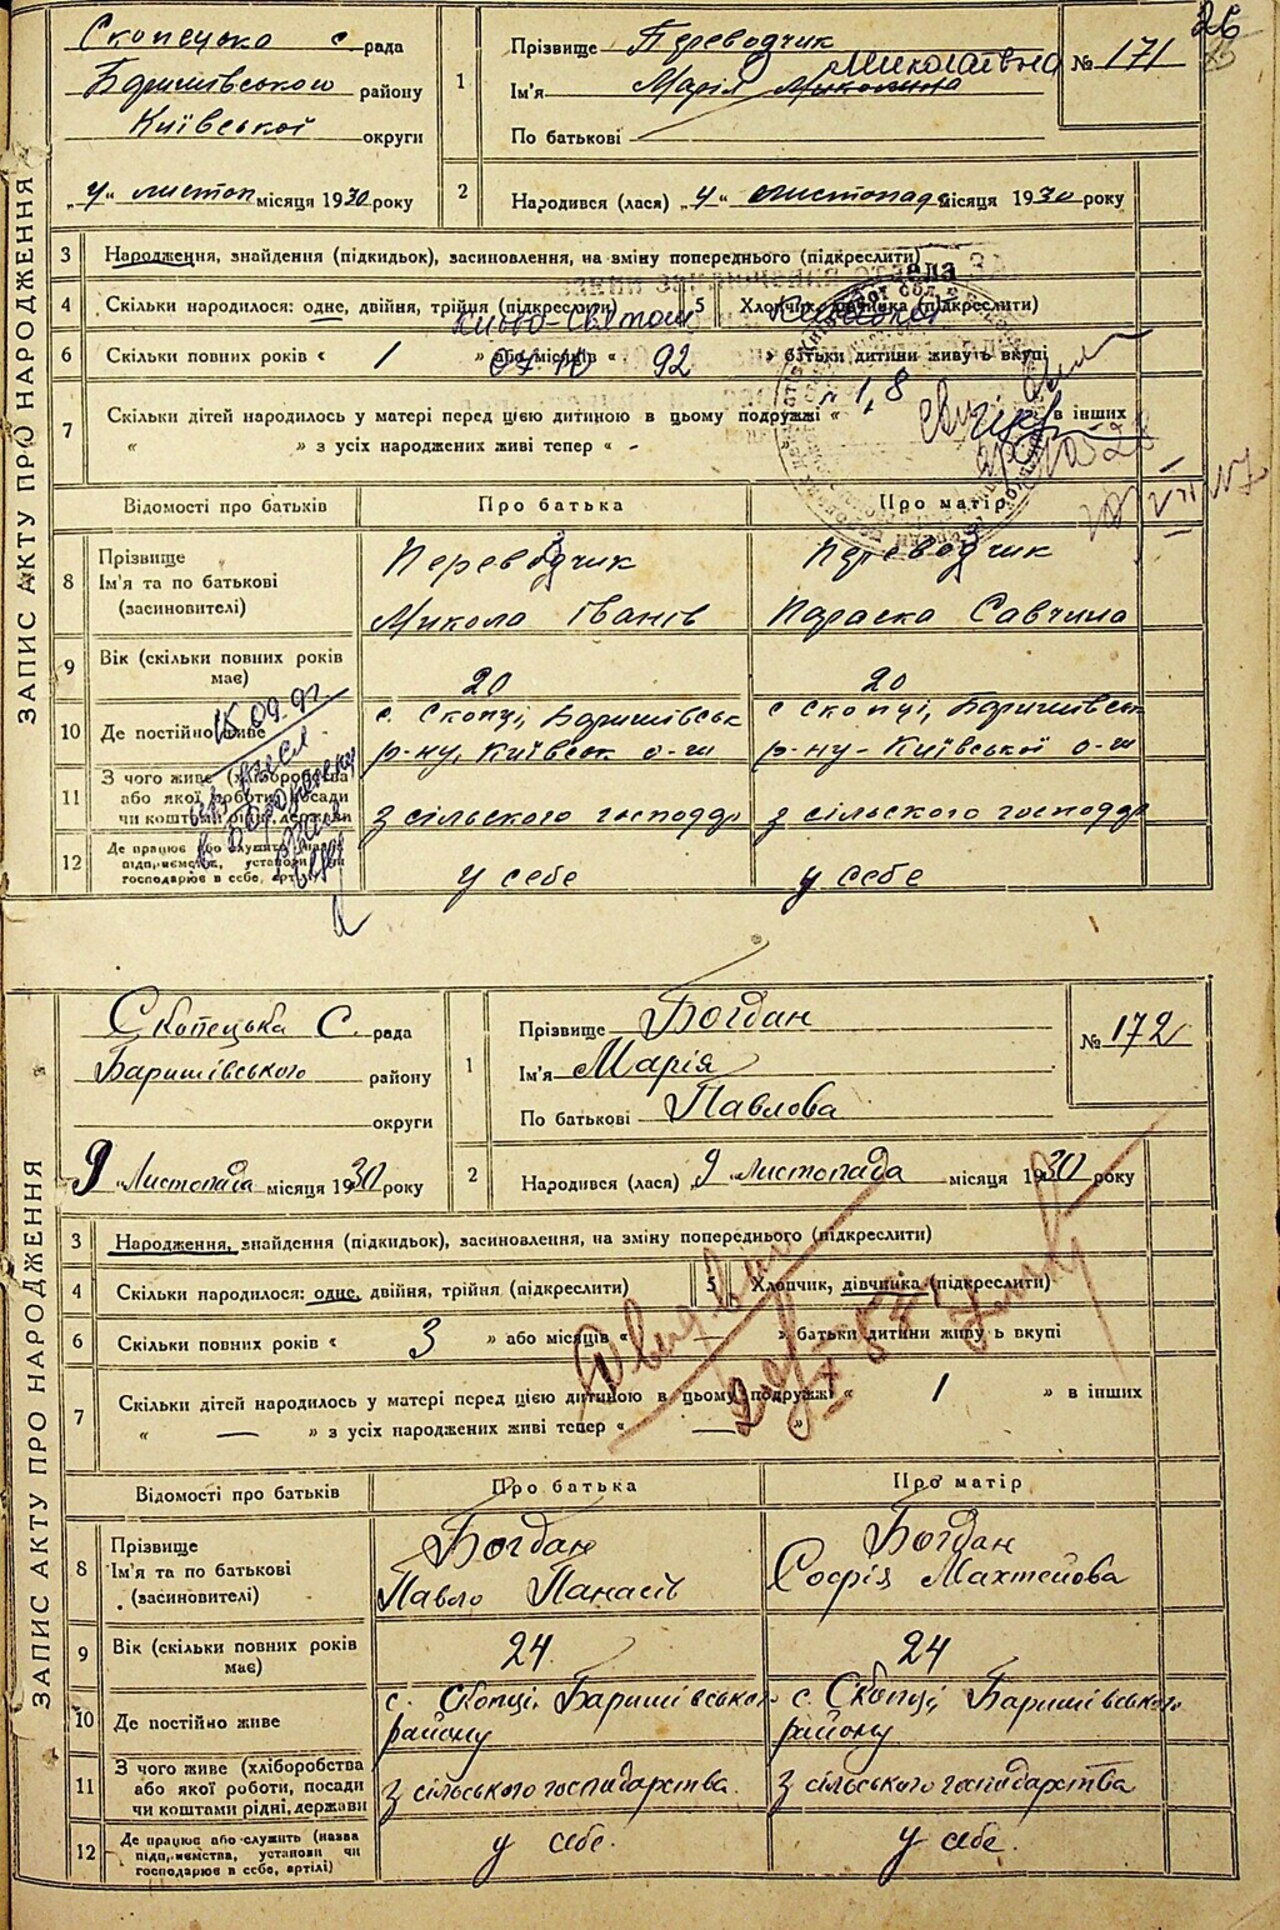 26
Скопецька с рада
Баришівського району
Київської округи
„4“ листоп місяця 1930 року
1
Прізвище Переводчик
Миколаївна
Ім'я Марія Миколина
По батькові
№ 171
2
Народився (лася) „4“ листопад місяця 1930 року
ЗАПИС АКТУ ПРО НАРОДЖЕННЯ
3 Народження, знайдення (підкидьок), засиновлення, на зміну попереднього (підкреслити)
4 Скільки народилося: одне, двійня, трійня (підкреслити) 5 Хлопчик, дівчинка (підкреслити)
6 Скільки повних років « 1 » або місяців « » батьки дитини живуть вкупі
7 Скільки дітей народилось у матері перед цією дитиною в цьому подружжі « в інших
« » з усіх народжених живі тепер « - »
Відомості про батьків Про батька Про матір
8 Прізвище Ім'я та по батькові (засиновителі)
Переводчик Переводчик
Микола Іванів Параска Савчина
9 Вік (скільки повних років має) 20 20
10 Де постійно живе
с. Скопці, Баришівськ с Скопці, Баришівськ
р-ну, Київськ о-ги р-ну - Київської о-ги
11 З чого живе (хліборобства або якої роботи, посади чи коштами рідні, держави
з сільского господар з сільского господар
12 Де працює або служить (назва підприємства, установи чи господарює в себе, артілі)
у себе у себе
15.09.92
Скопецька С. рада
Баришівського району
округи
9 „Листопада місяця 1930 року
1
Прізвище Богдан
Ім'я Марія
По батькові Павлова
№ 172
2
Народився (лася) „9 „Листопада місяця 1930 року
ЗАПИС АКТУ ПРО НАРОДЖЕННЯ
3 Народження, знайдення (підкидьок), засиновлення, на зміну попереднього (підкреслити)
4 Скільки народилося: одне, двійня, трійня (підкреслити) 5 Хлопчик, дівчинка (підкреслити)
6 Скільки повних років « 3 » або місяців « — » батьки дитини живуь вкупі
7 Скільки дітей народилось у матері перед цією дитиною в цьому подружжі « 1 » в інших
« — » з усіх народжених живі тепер « — »
Відомості про батьків Про батька Про матір
8 Прізвище Ім'я та по батькові (засиновителі)
Богдан Богдан
Павло Панасів Софія Махтейова
9 Вік (скільки повних років має) 24 24
10 Де постійно живе
с. Скопці, Баришівського с. Скопці, Баришівського
району району
11 З чого живе (хліборобства або якої роботи, посади чи коштами рідні, держави
З сільського господарства. З сільського господарства
12 Де працює або служить (назва підприємства, установи чи господарює в себе, артілі)
у себе. у себе.